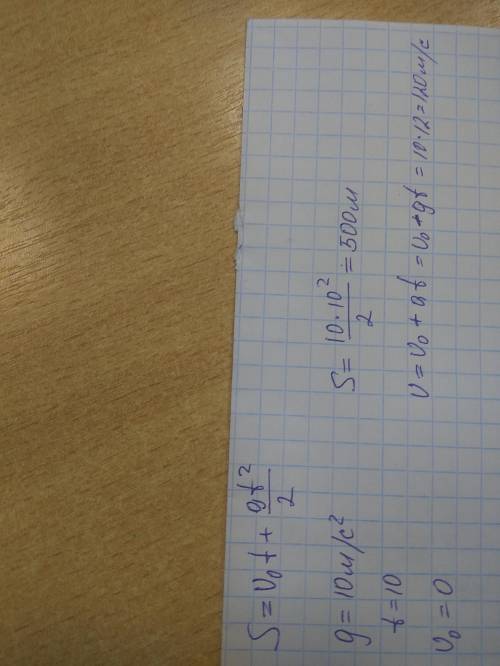 S = v₀t + gt²/2
g = 10 м/с²
t = 10
v₀ = 0
S = 10·10²/2 = 500 м
v = v₀ + at = v₀ + gt = 10·12 = 120 м/с